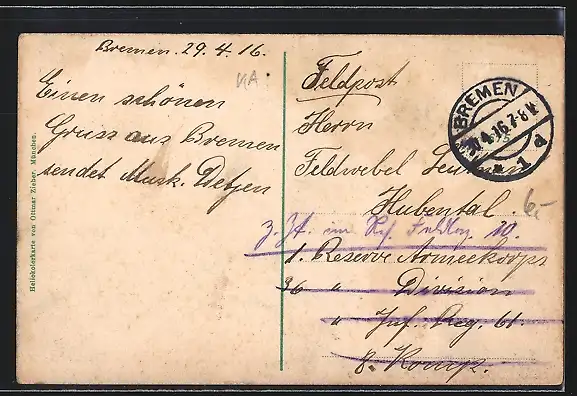 Bremen. 29. 4. 16.
Einen schönen
Gruss aus Bremen
sendet Musk. Detjen
Heliokolorkarte von Ottmar Zieher, München.
Feldpost
Herrn
Feldwebel
Hubental.
z. Zt. im Res. 20.
1. Reserve Armeekorps
36 " Division
" Inf. Reg. 61.
8. Komp.
BREMEN
30.4.16.7-8V.
* 1 d
6,-